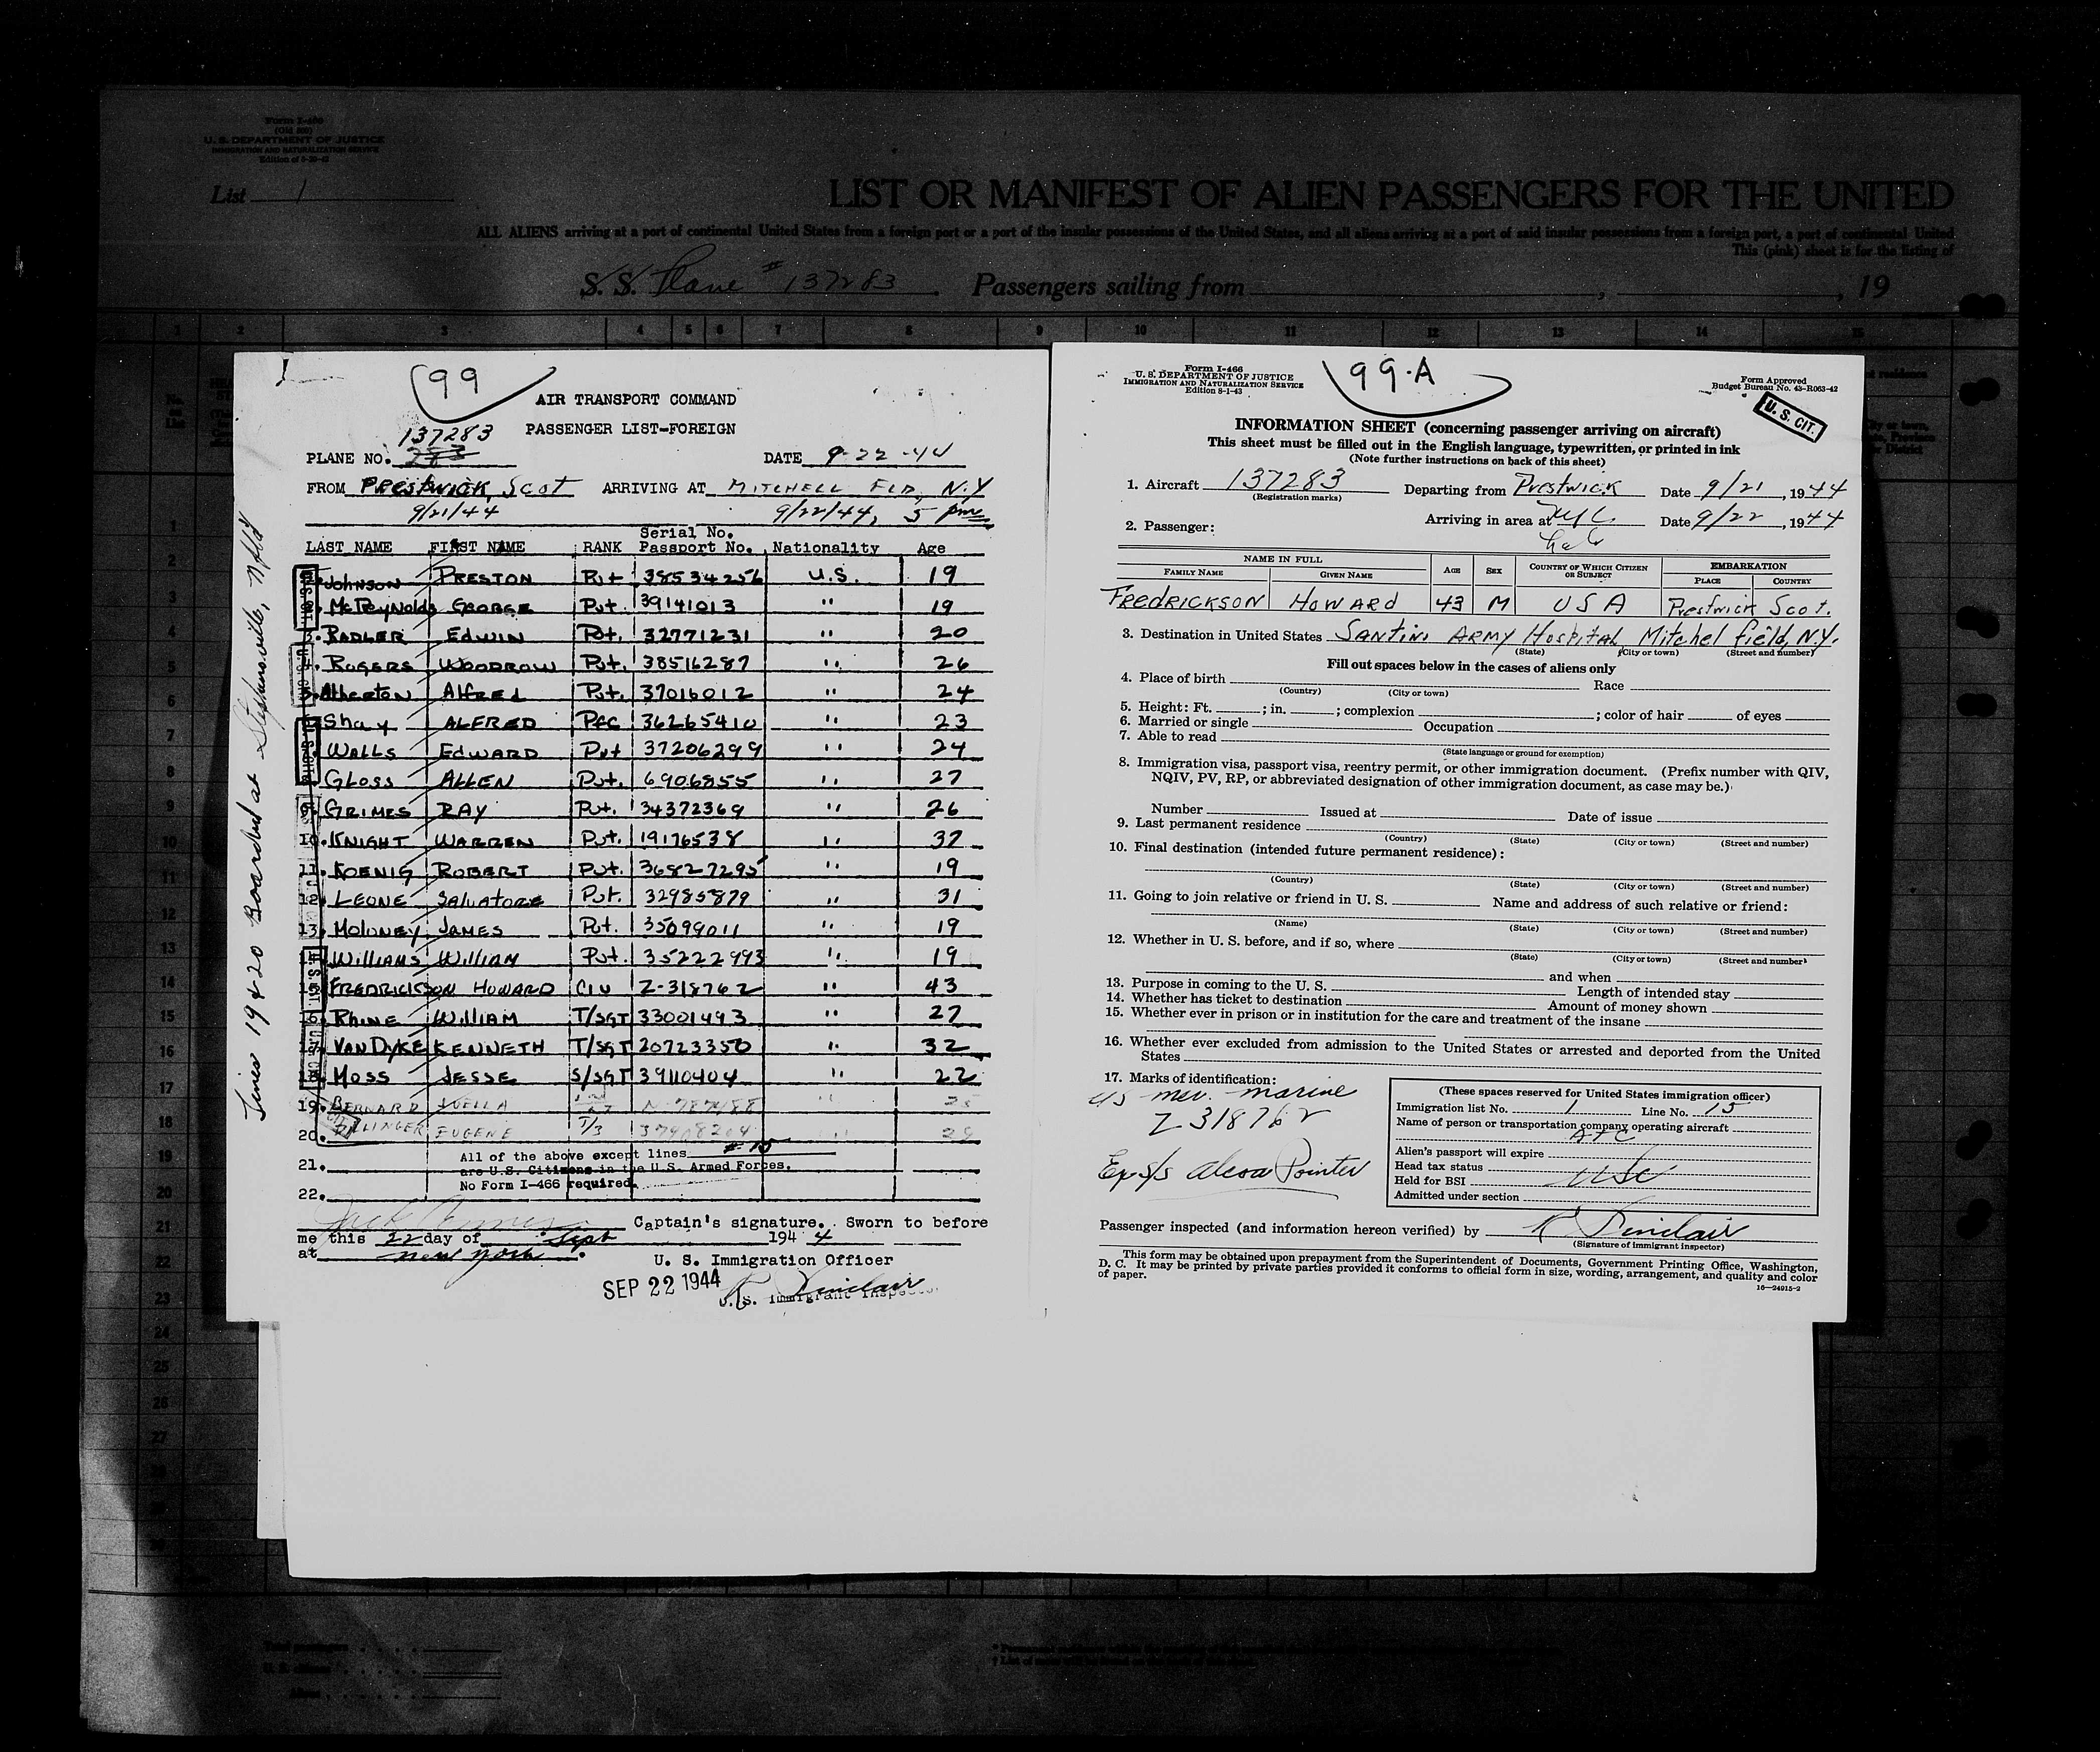 Form I-466
(Old 500)
U. S. DEPARTMENT OF JUSTICE
IMMIGRATION AND NATURALIZATION SERVICE
List 1
LIST OR MANIFEST OF ALIEN PASSENGERS FOR THE UNITED
ALL ALIENS arriving at a port of continental United States from a foreign port or a port of the insular possessions of the United States, and all aliens arriving at a port of said insular possessions from a foreign port, a port of continental United
This (pink) sheet is for the listing of
S. S. Plane # 137283 Passengers sailing from , , 19
99
AIR TRANSPORT COMMAND
PASSENGER LIST-FOREIGN
137283
PLANE NO. 283 DATE 9-22-44
FROM PRESTWICK, SCOT ARRIVING AT MITCHELL FLD, N.Y
9/21/44 9/22/44, 5 pm
LAST NAME FIRST NAME RANK Serial No. Passport No. Nationality Age
1. Johnson PRESTON Pvt 38534256 U.S. 19
2. McReynolds GEORGE Pvt. 39141013 " 19
3. BADLER EDWIN Pvt. 32771231 " 20
4. ROGERS WOODROW Pvt. 38516287 " 26
5. Atherton Alfred Pvt. 37016012 " 24
6. Shay ALFRED PFC 36265410 " 23
7. WALLS EDWARD Pvt 37206299 " 24
8. GLOSS ALLEN Pvt. 6906855 " 27
9. GRIMES RAY Pvt. 34372369 " 26
10. KNIGHT WARREN Pvt. 19176538 " 37
11. KOENIG ROBERT Pvt. 36827295 " 19
12. LEONE SALVATORE Pvt. 32985879 " 31
13. MOLONEY JAMES Pvt. 35099011 " 19
14. WILLIAMS WILLIAM Pvt. 35222993 " 19
15. FREDRICKSON HOWARD CIV Z-318762 " 43
16. RHINE WILLIAM T/SGT 33001493 " 27
17. VAN DYKE KENNETH T/SGT 20723350 " 32
18. MOSS JESSE S/SGT 39110404 " 22
19. BERNARD LUELLA N-787488 " 25
20. EUGENE T/3 37908204 "
21. All of the above except lines # 15
are U.S. Citizens in the U.S. Armed Forces.
22. No Form I-466 required.
Captain's signature. Sworn to before
me this 22 day of Sept 194 4
at New York.
U. S. Immigration Officer
SEP 22 1944 R Sinclair
U. S. Immigrant Inspector
Lines 19 & 20 Boarded at Stephensville, Nfld
99-A
Form I-466
U. S. DEPARTMENT OF JUSTICE
IMMIGRATION AND NATURALIZATION SERVICE
Edition 8-1-43
Form Approved
Budget Bureau No. 43-R063-42
U. S. CIT.
INFORMATION SHEET (concerning passenger arriving on aircraft)
This sheet must be filled out in the English language, typewritten, or printed in ink
(Note further instructions on back of this sheet)
1. Aircraft 137283 Departing from Prestwick Date 9/21, 1944
(Registration marks)
2. Passenger: Arriving in area at NYC Date 9/22, 1944
NAME IN FULL AGE SEX COUNTRY OF WHICH CITIZEN OR SUBJECT EMBARKATION
FAMILY NAME GIVEN NAME PLACE COUNTRY
FREDRICKSON HOWARD 43 M USA Prestwick Scot.
3. Destination in United States SANTINI ARMY HOSPITAL, Mitchel field, N.Y.
(State) (City or town) (Street and number)
Fill out spaces below in the cases of aliens only
4. Place of birth Race
(Country) (City or town)
5. Height: Ft. ; in. ; complexion ; color of hair of eyes
6. Married or single Occupation
7. Able to read
(State language or ground for exemption)
8. Immigration visa, passport visa, reentry permit, or other immigration document. (Prefix number with QIV,
NQIV, PV, RP, or abbreviated designation of other immigration document, as case may be.)
Number Issued at Date of issue
9. Last permanent residence
(Country) (State) (City or town) (Street and number)
10. Final destination (intended future permanent residence):
(Country) (State) (City or town) (Street and number)
11. Going to join relative or friend in U. S. Name and address of such relative or friend:
(Name) (State) (City or town) (Street and number)
12. Whether in U. S. before, and if so, where
(State) (City or town) (Street and number)
and when
13. Purpose in coming to the U. S. Length of intended stay
14. Whether has ticket to destination Amount of money shown
15. Whether ever in prison or in institution for the care and treatment of the insane
16. Whether ever excluded from admission to the United States or arrested and deported from the United
States
17. Marks of identification:
US mer. marine
Z 318762
Ex s/s Alcoa Pointer
(These spaces reserved for United States immigration officer)
Immigration list No. 1 Line No. 15
Name of person or transportation company operating aircraft
ATC
Alien's passport will expire
Head tax status
Held for BSI USC
Admitted under section
Passenger inspected (and information hereon verified) by R Sinclair
(Signature of immigrant inspector)
This form may be obtained upon prepayment from the Superintendent of Documents, Government Printing Office, Washington,
D. C. It may be printed by private parties provided it conforms to official form in size, wording, arrangement, and quality and color
of paper.
16-24915-2